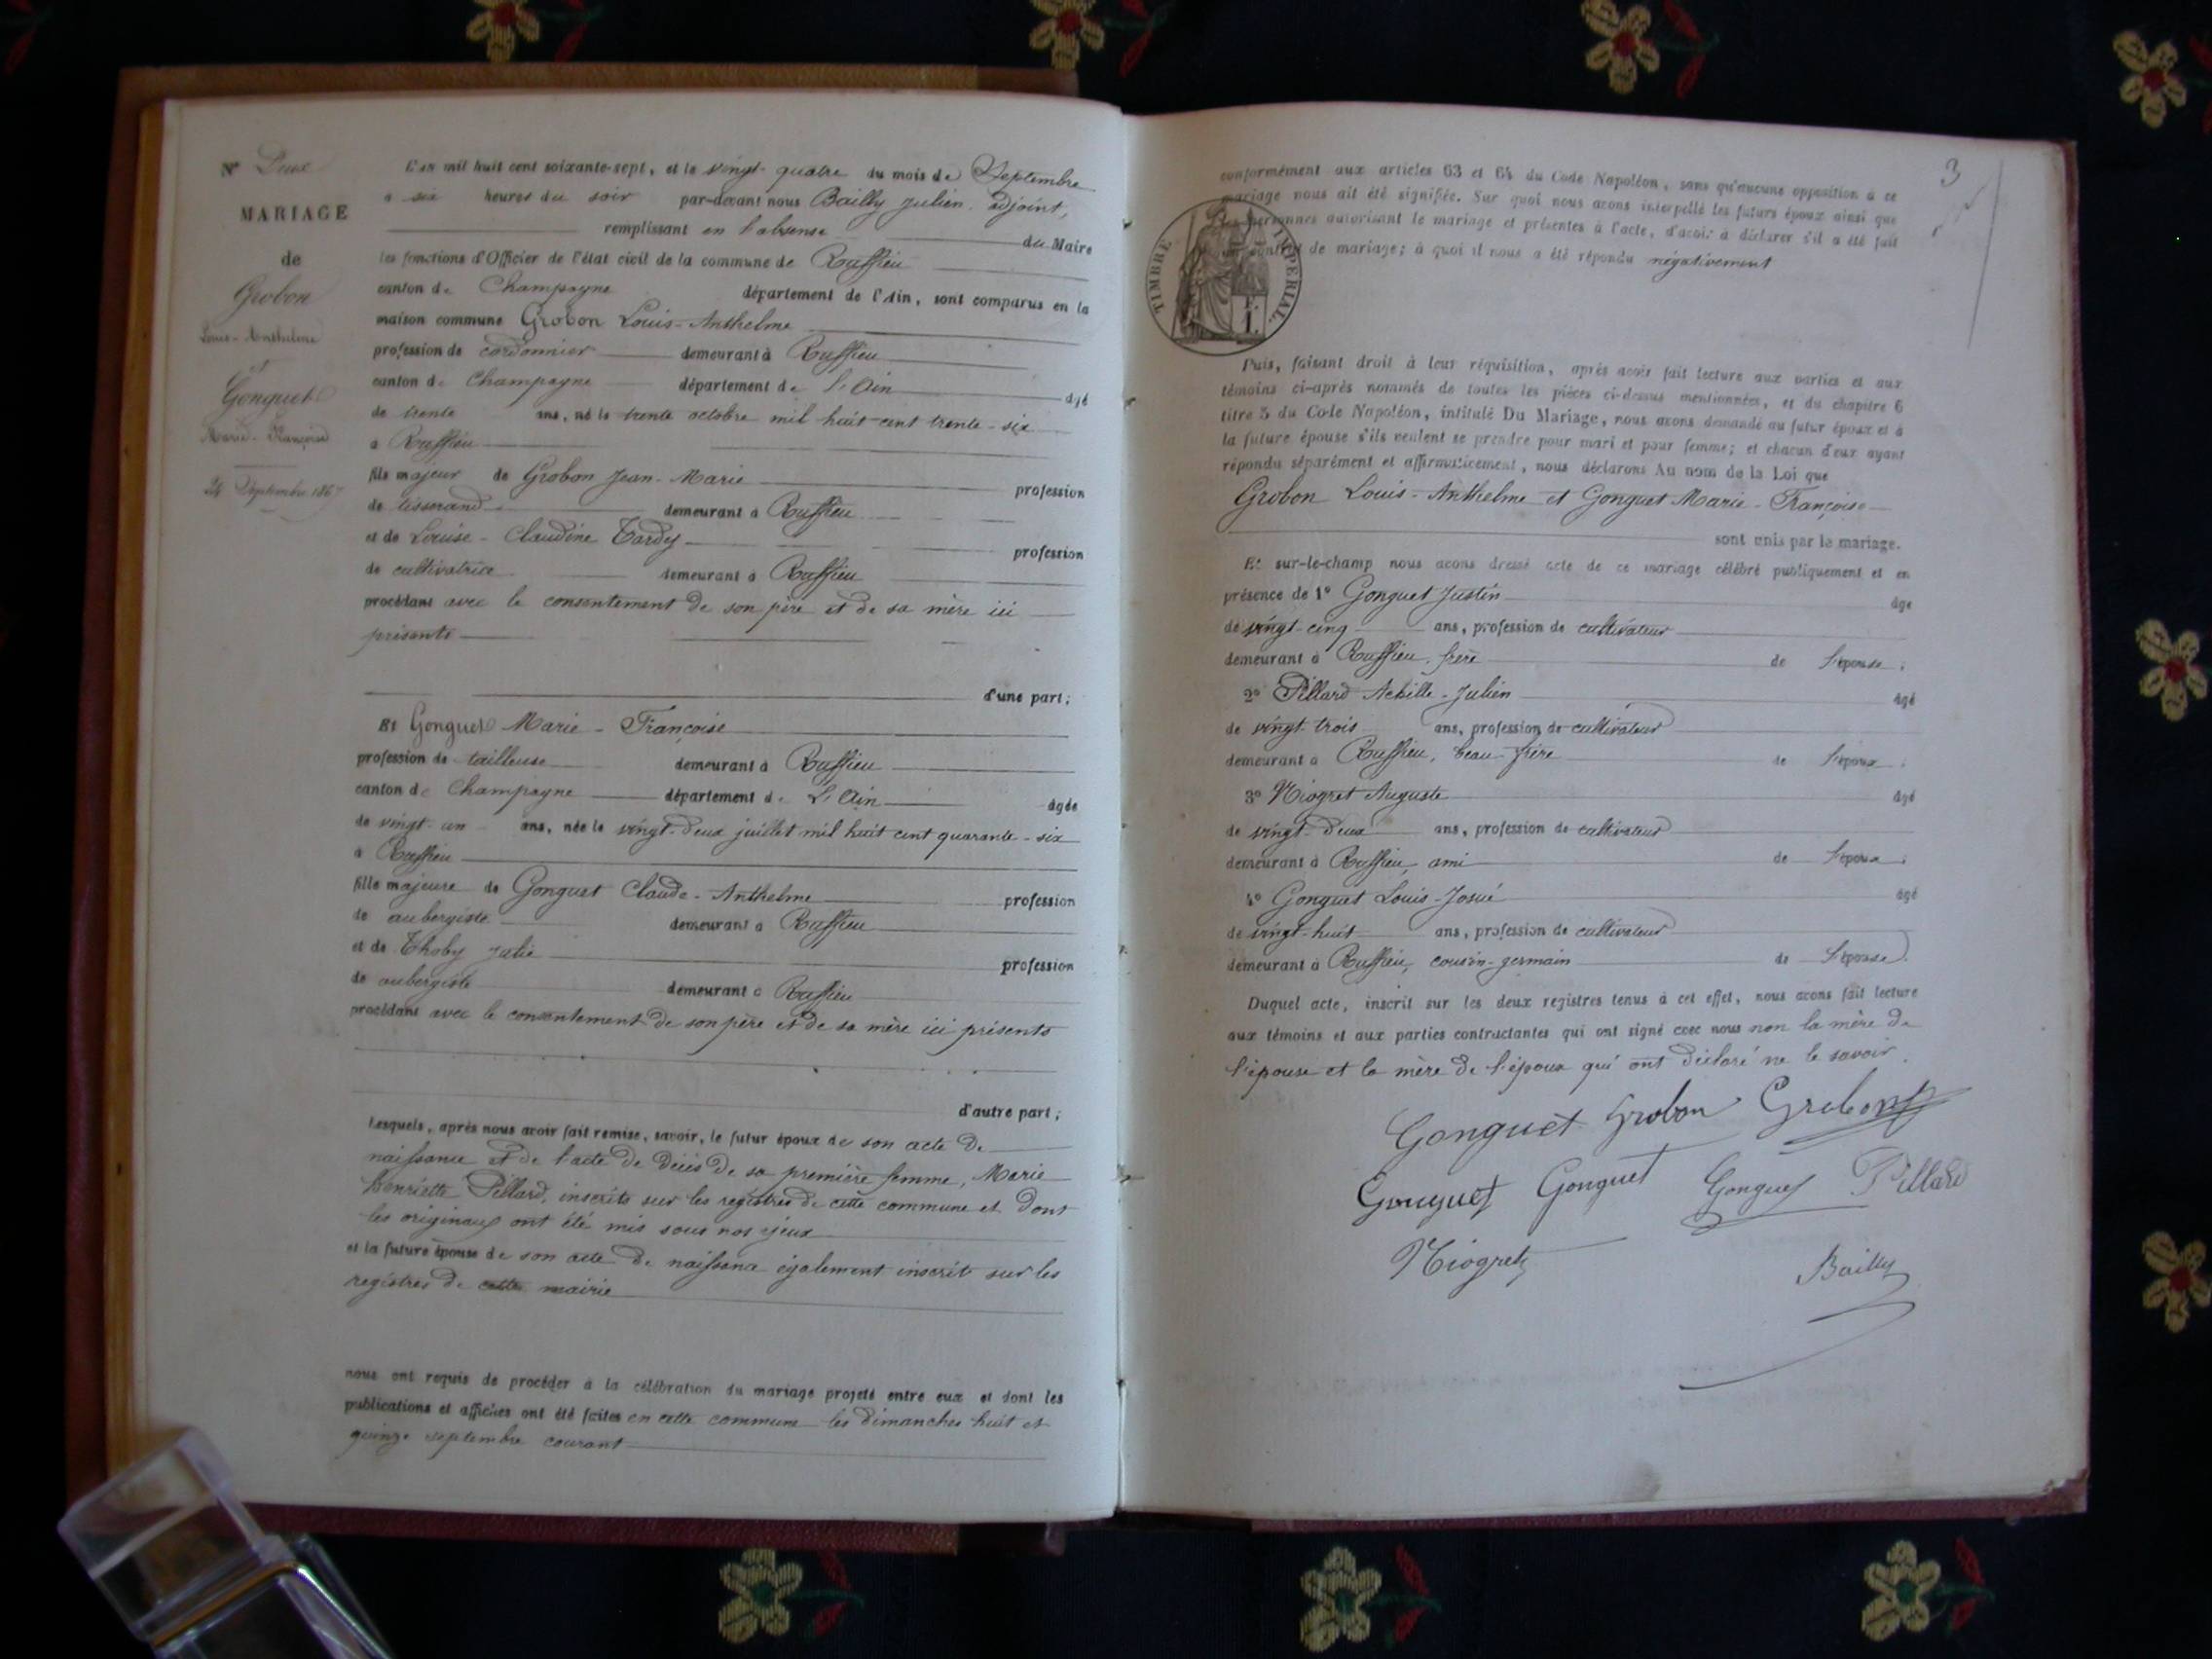 N° Deux
MARIAGE
de
Grobon
Louis-Anthelme
et
Gonguet
Marie-Françoise
24 Septembre 1867
L'an mil huit cent soixante-sept, et le vingt-quatre du mois de Septembre
à six heures du soir par-devant nous Bailly Julien, adjoint,
remplissant en l'absense du Maire
les fonctions d'Officier de l'état civil de la commune de Ruffieu
canton de Champagne département de l'Ain, sont comparus en la
maison commune Grobon Louis-Anthelme
profession de cordonnier demeurant à Ruffieu
canton de Champagne département de l'Ain âgé
de trente ans, né le trente octobre mil huit cent trente-six
à Ruffieu
fils majeur de Grobon Jean-Marie profession
de tisserand demeurant à Ruffieu
et de Louise-Claudine Tardy profession
de cultivatrice demeurant à Ruffieu
procédant avec le consentement de son père et de sa mère ici
présents
d'une part;
Et Gonguet Marie-Françoise
profession de tailleuse demeurant à Ruffieu
canton de Champagne département de L'Ain âgée
de vingt-un ans, née le vingt-deux juillet mil huit cent quarante-six
à Ruffieu
fille majeure de Gonguet Claude-Anthelme profession
de aubergiste demeurant à Ruffieu
et de Thoby Julie profession
de aubergiste demeurant à Ruffieu
procédant avec le consentement de son père et de sa mère ici présents
d'autre part;
Lesquels, après nous avoir fait remise, savoir, le futur époux de son acte de
naissance et de l'acte de décès de sa première femme, Marie
Henriette Pillard, inscrits sur les registres de cette commune et dont
les originaux ont été mis sous nos yeux
et la future épouse de son acte de naissance également inscrit sur les
registres de cette mairie
nous ont requis de procéder à la célébration du mariage projeté entre eux et dont les
publications et affiches ont été faites en cette commune les dimanches huit et
quinze septembre courant
3
conformément aux articles 63 et 64 du Code Napoléon, sans qu'aucune opposition à ce
mariage nous ait été signifiée. Sur quoi nous avons interpellé les futurs époux ainsi que
les personnes autorisant le mariage et présentes à l'acte, d'avoir à déclarer s'il a été fait
un contrat de mariage; à quoi il nous a été répondu négativement
TIMBRE IMPÉRIAL
1 F.
Puis, faisant droit à leur réquisition, après avoir fait lecture aux parties et aux
témoins ci-après nommés de toutes les pièces ci-dessus mentionnées, et du chapitre 6
titre 5 du Code Napoléon, intitulé Du Mariage, nous avons demandé au futur époux et à
la future épouse s'ils veulent se prendre pour mari et pour femme; et chacun d'eux ayant
répondu séparément et affirmativement, nous déclarons Au nom de la Loi que
Grobon Louis-Anthelme et Gonguet Marie-Françoise
sont unis par le mariage.
Et sur-le-champ nous avons dressé acte de ce mariage célébré publiquement et en
présence de 1° Gonguet Justin âgé
de vingt-cinq ans, profession de cultivateur
demeurant à Ruffieu, frère de l'épouse;
2° Pillard Achille-Julien âgé
de vingt-trois ans, profession de cultivateur
demeurant à Ruffieu, beau-frère de l'époux;
3° Niogret Auguste âgé
de vingt-deux ans, profession de cultivateur
demeurant à Ruffieu, ami de l'époux;
4° Gonguet Louis-Josué âgé
de vingt-huit ans, profession de cultivateur
demeurant à Ruffieu, cousin-germain de l'épouse.
Duquel acte, inscrit sur les deux registres tenus à cet effet, nous avons fait lecture
aux témoins et aux parties contractantes qui ont signé avec nous non la mère de
l'épouse et la mère de l'époux qui ont déclaré ne le savoir.
Gonguet Grobon Grobon
Gonguet Gonguet Gonguet Pillard
Niogret Bailly